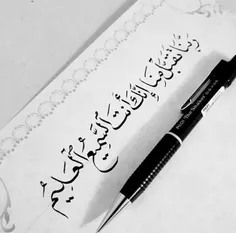 رَبَّنَا تَقَبَّلْ مِنَّا إِنَّكَ أَنْتَ السَّمِيعُ الْعَلِيمُ